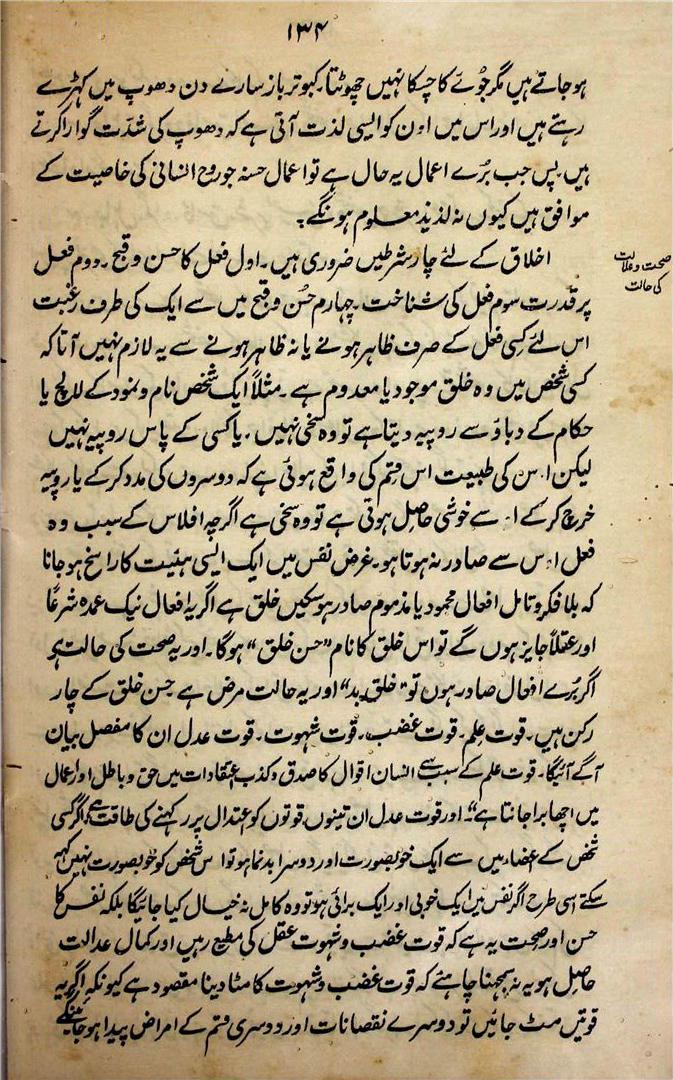 ۱۳۴
ہوجاتے ہیں مگر جُوئے کا چسکا نہیں چھوٹتا۔ کبوتر باز سارے دن دھوپ میں کہڑے
رہتے ہیں اور اس میں اون کو ایسی لذت آتی ہے کہ دھوپ کی شدّت گوارا کرتے
ہیں پس جب بُرے اعمال یہ حال ہے تو اعمال حسنہ جو روح انسانی کی خاصیت کے
موافق ہیں کیوں نہ لذیذ معلوم ہونگے۔
صحت و علالت
کی حالت
اخلاق کے لئے چار شرطیں ضروری ہیں۔ اول فعل کا حسن و قبح۔ دوم فعل
پر قدرت سوم فعل کی شناخت۔ چہارم حُسن و قبح میں سے ایک کی طرف رغبت
اس لئے کسی فعل کے صرف ظاہر ہونے یا نہ ظاہر ہونے سے یہ لازم نہیں آتا کہ
کسی شخص میں وہ خلق موجود یا معدوم ہے۔ مثلاً ایک شخص نام و نمود کے لالچ یا
حکام کے دباؤ سے روپیہ دیتا ہے تو وہ سخی نہیں۔ یا کسی کے پاس روپیہ نہیں
لیکن اس کی طبیعت اس قسم کی واقع ہوئی ہے کہ دوسروں کی مدد کر کے یا روپیہ
خرچ کر کے اسے خوشی حاصل ہوتی ہے تو وہ سخی ہے اگرچہ افلاس کے سبب وہ
فعل اس سے صادر نہ ہوتا ہو۔ غرض نفس میں ایک ایسی ہئیت کا راسخ ہوجانا
کہ بلا فکر و تامل افعال محمود یا مذموم صادر ہوسکیں خلق ہے اگر یہ افعال نیک عمدہ شرعًا
اور عقلاً جایز ہوں گے تو اس خلق کا نام "حسن خلق" ہوگا۔ اور یہ صحت کی حالت ہو
اگر بُرے افعال صادر ہوں تو "خلق بد" اور یہ حالت مرض ہے حسن خلق کے چار
رکن ہیں۔ قوت علم۔ قوت غضب۔ قوت شہوت۔ قوت عدل ان کا مفصل بیان
آگے آئیگا۔ قوت علم کے سبب سے انسان اقوال کا صدق و کذب اعتقادات میں حق و باطل اور اعمال
میں اچھا برا جانتا ہے" اور قوت عدل ان تینوں قوتوں کو اعتدال پر رکہنے کی طاقت ہے اگر کسی
شخص کے اعضاء میں سے ایک خوبصورت اور دوسرا بدنما ہو تو اس شخص کو خوبصورت نہیں کہہ
سکتے اسی طرح اگر نفس میں ایک خوبی اور ایک برائی ہو تو وہ کامل نہ خیال کیا جائیگا بلکہ نفس کا
حسن اور صحت یہ ہے کہ قوت غضب و شہوت عقل کی مطیع رہیں اور کمال عدالت
حاصل ہو یہ نہ سمجہنا چاہئے کہ قوت غضب و شہوت کا مٹا دینا مقصود ہے کیونکہ اگر یہ
قوتیں مٹ جائیں تو دوسرے نقصانات اور دوسری قسم کے امراض پیدا ہوجائینگے